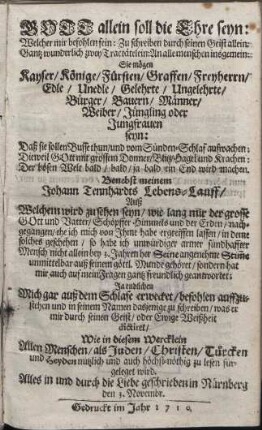 GOTT allein soll die Ehre seyn:
Welcher mir befohlen fein: Zu schreiben durch seinen Geist allein:
Gantz wunderlich zwey Tractätelein: An alle menschen ins gemein:
Sie mögen
Kayser/ Könige/ Fürsten/ Graffen/ Freyherrn/
Edle / Unedle / Gelehrte / Ungelehrte/
Bürger/ Bauern/ Männer/
Weiber/ Jüngling oder
Jungfrauen
seyn:
Daß sie sollen Busse thun/ und vom Sünden-Schlaf aufwachen:
Dieweil GOtt mit grössem Donner/ Blitz/ Hagel und Krachen:
Der bösen Welt bald/ bald/ ja bald ein End wird machen.
Benebst meinem
Johann Tennhardts Lebens-Lauff/
Auß
Welchem wird zu sehen seyn/ wie lang mir der grosse
GOtt und Vatter/ Schöpffer Himmels und der Erden / nach-
gegangen/ ehe ich mich von Ihme habe ergreiffen lassen/ in deme
solches geschehen / so habe ich unwürdiger armer sündhaffter
Mensch nicht allein bey 3. Jahren her Seine angenehme Stimme
unmittelbar auß seinem göttl. Munde gehöret/ sondern hat
mir auch auf mein Fragen gantz freundlich geantwortet:
Ja endlichen
Mich gar auß dem Schlafe erwecket/ befohlen auffzu-
stehen und in seinem Namen dasjenige zu schreiben/ was er
mir durch seinen Geist/ oder Ewige Weißheit
dictiret/
Wie in diesem Wercklein
Allen Menschen/ als Juden/ Christen/ Türcken
und Heyden nutzlich und auch höchst-nöthig zu lesen für-
geleget wird.
Alles in und durch die Liebe geschrieben in Nürnberg
den 3. Novembr.
Gedruckt im Jahr 1710.